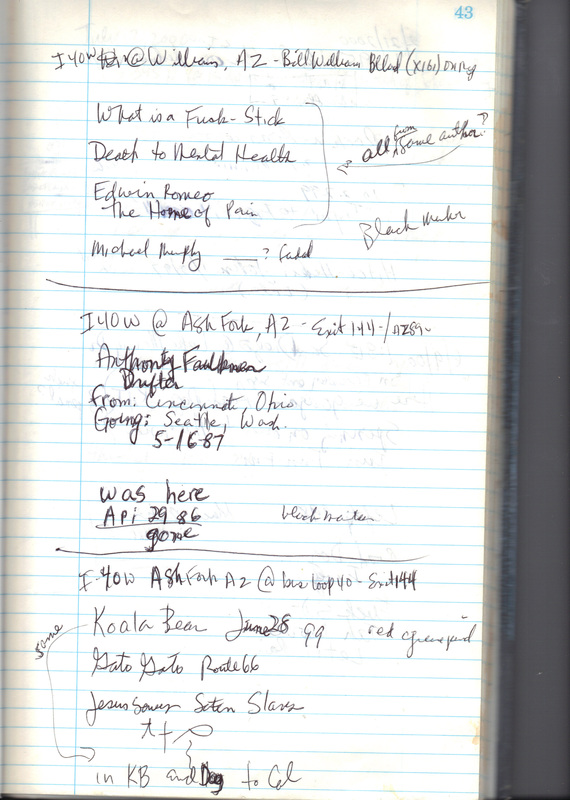 43
I 40W @ Williams, AZ - Bill Williams (X161)
What is a Funk-Stick
Death to Mental Health
all from same author?
Edwin Romeo
The Home of Pain
Black
Michael Murphy ___? faded
I 40W @ Ash Fork, AZ - Exit 144-/AZ89-
Anthonty Faulkner
Drifter
From: Cincinnati Ohio
Going: Seattle, Wash.
5-16-87
was here
Api 29 86
gone
black
I-40W Ash Fork AZ @ bus loop 40 - Exit 144
same
Koala Bear June 28 99 red
Gato Gato Route 66
Jesus Saves Seten Slaves
in KB and Dog to Cal